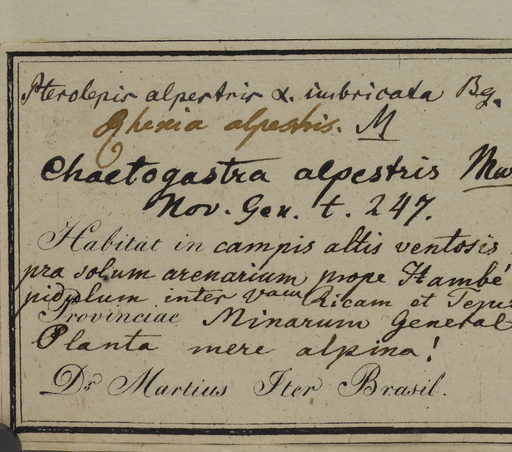 Pterolepis alpestris α. imbricata Bg.
Rhexia alpestris. M
Chaetogastra alpestris Mar
Nov. Gen. t. 247.
Habitat in campis altis ventosis
pra solum arenarium prope Itambé
pidulum inter Vam Ricam et Teju
Provinciae Minarum General
Planta mere alpina!
Dr Martius Iter Brasil.